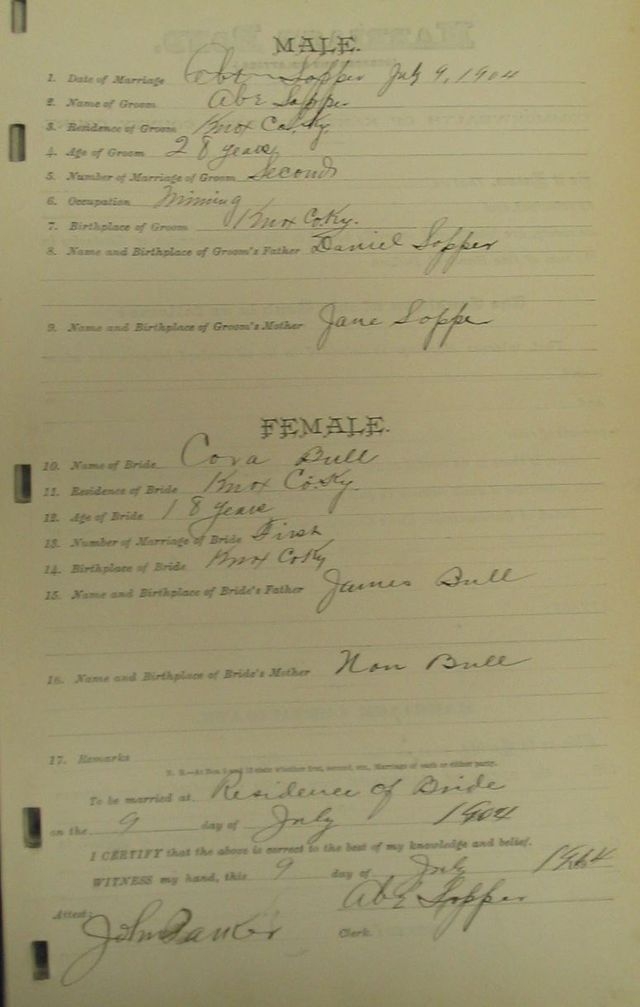 MALE.
1. Date of Marriage July 9, 1904
2. Name of Groom Abe Sopper
3. Residence of Groom Knox Co. Ky.
4. Age of Groom 28 years
5. Number of Marriage of Groom Second
6. Occupation Mining
7. Birthplace of Groom Knox Co. Ky.
8. Name and Birthplace of Groom's Father Daniel Sopper
9. Name and Birthplace of Groom's Mother Jane Sopper
FEMALE.
10. Name of Bride Cora Bull
11. Residence of Bride Knox Co. Ky.
12. Age of Bride 18 years
13. Number of Marriage of Bride First
14. Birthplace of Bride Knox Co Ky
15. Name and Birthplace of Bride's Father James Bull
16. Name and Birthplace of Bride's Mother Bull
17. Remarks
N. B.—At Nos. 5 and 13 state whether first, second, etc., Marriage of each or either party.
To be married at Residence of Bride
on the 9 day of July 1904
I CERTIFY that the above is correct to the best of my knowledge and belief.
WITNESS my hand, this 9 day of July 1904
Abe Sopper
Attest:
John Parker Clerk.